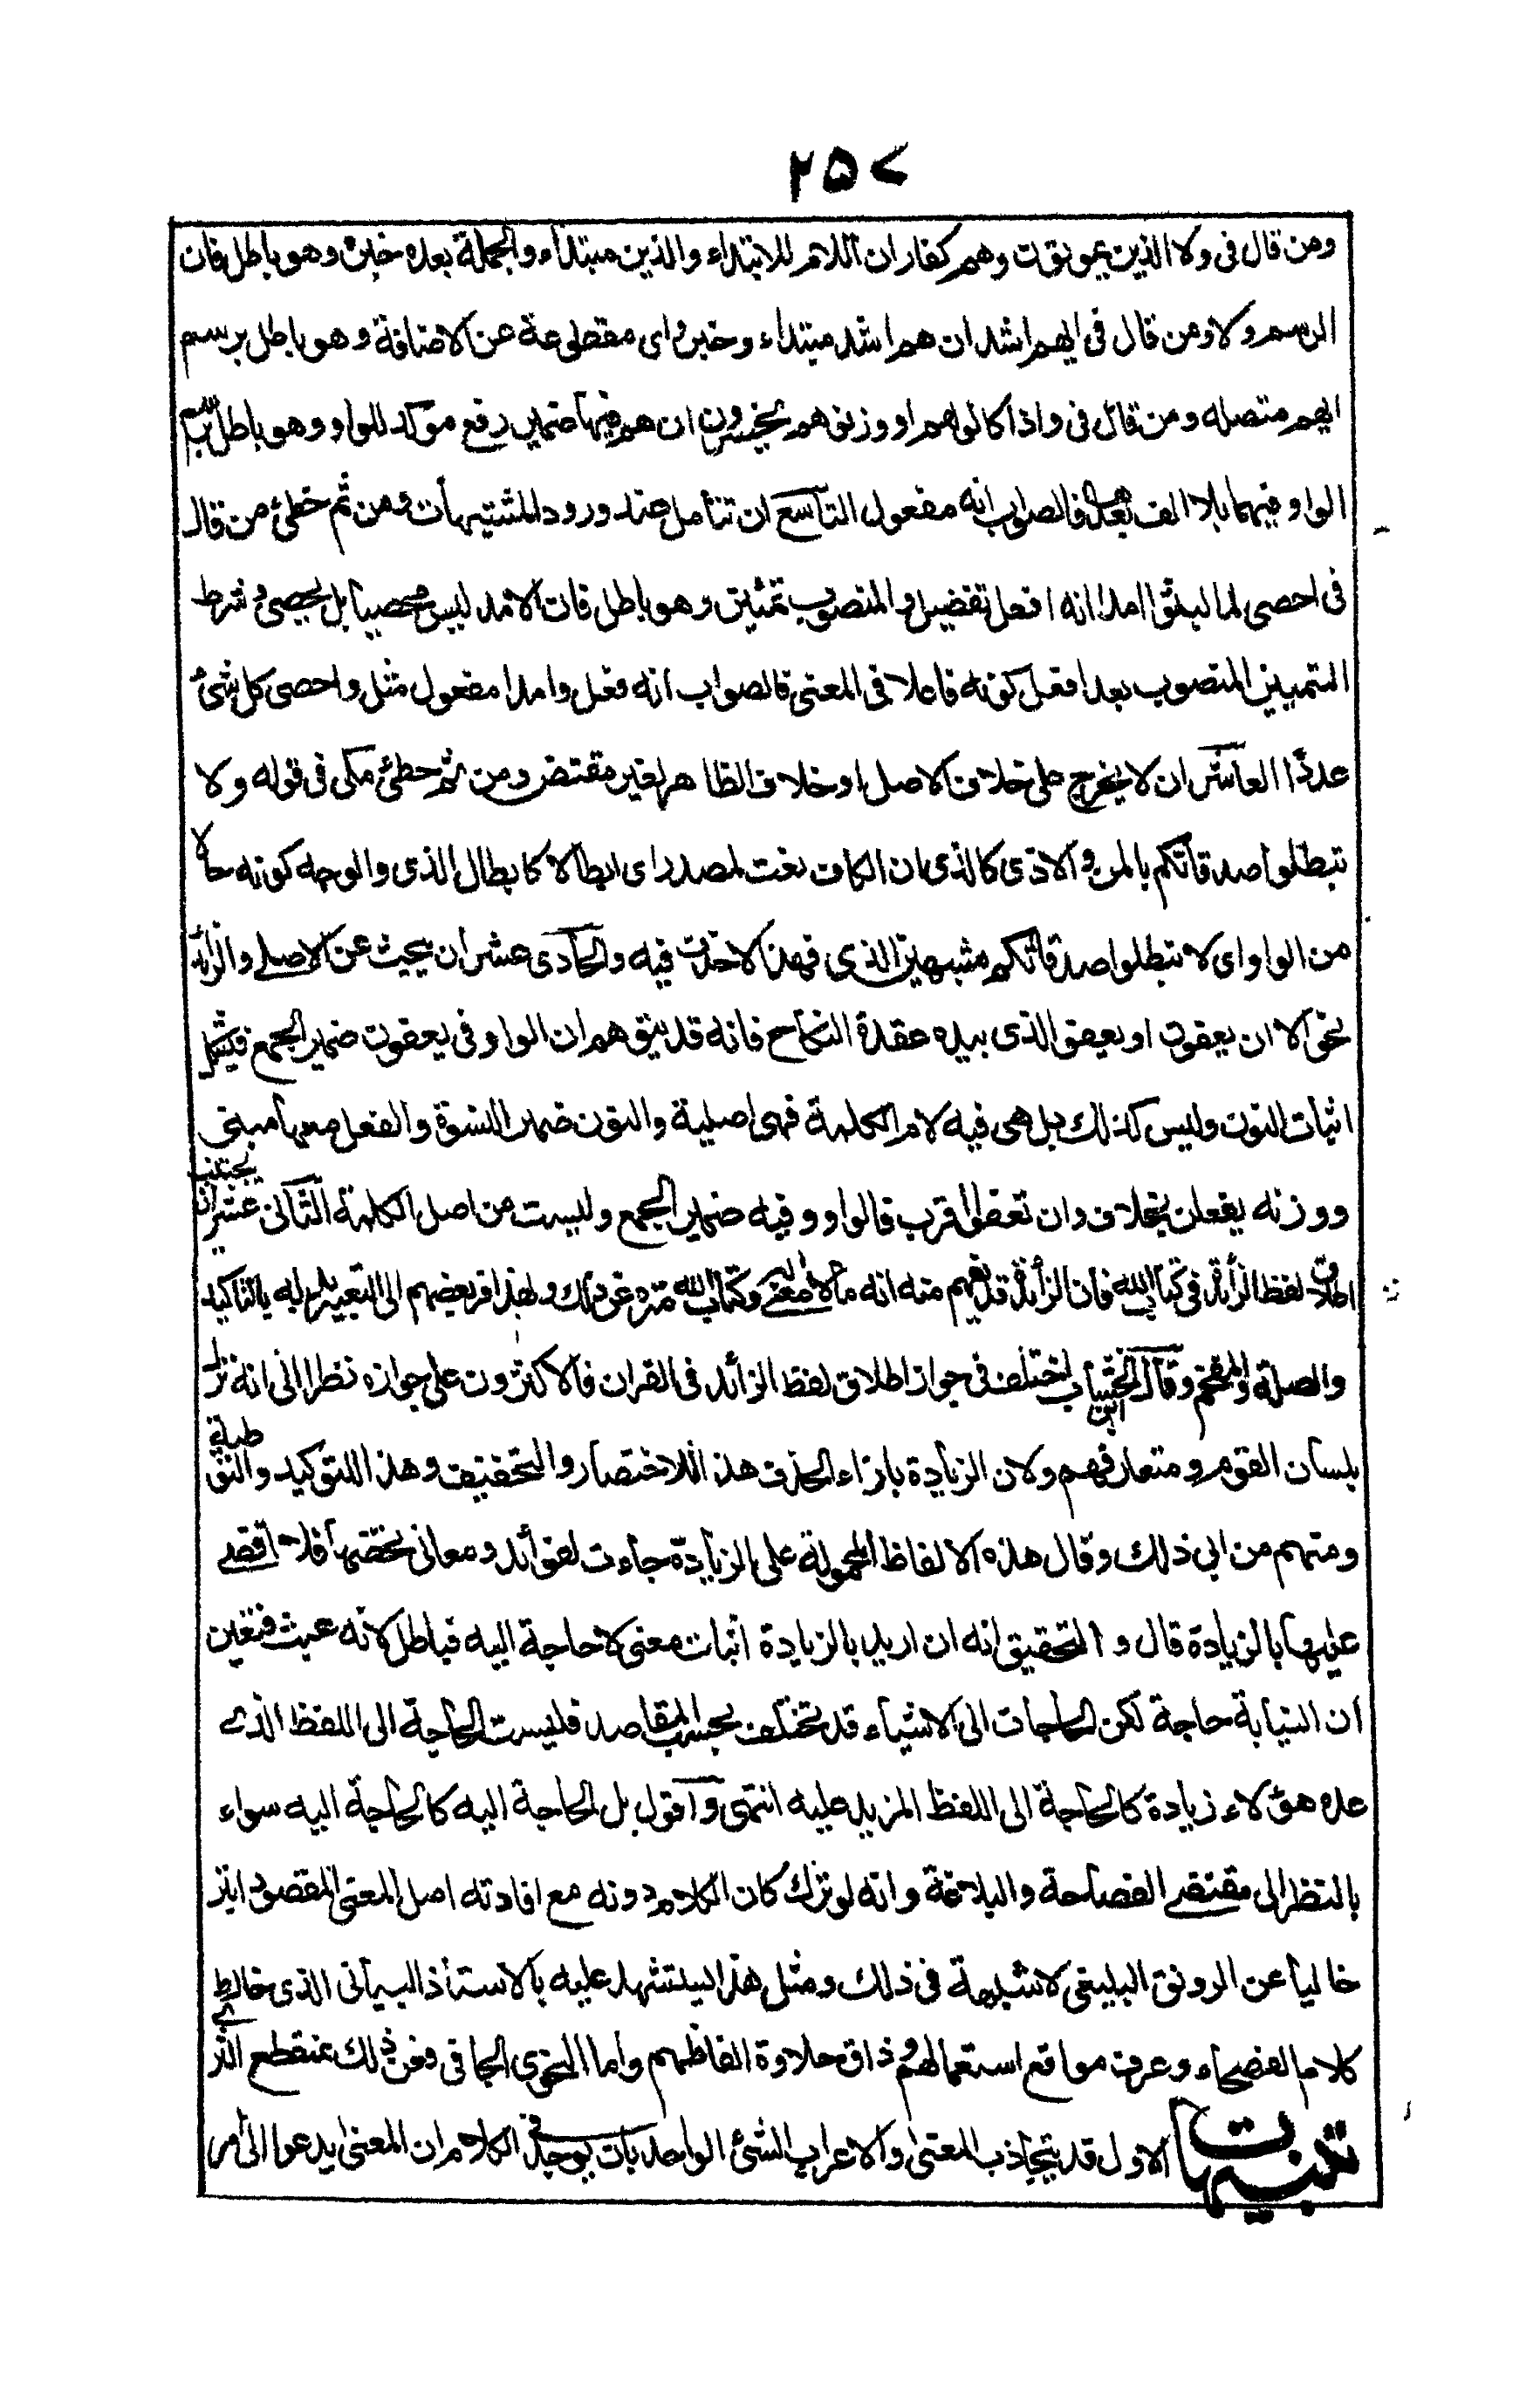 ٢٥٧
ومن قال فى ولا الذين يموتون وهم كفار ان اللام للابتداء والذين مبتداء والجملة بعده خبره وهو باطل فان
الرسم ولا ومن قال فى ايهم اشد ان هم اشد مبتداء وخبر واى مقطوعة عن الاضافة وهو باطل برسم
ايهم متصله ومن قال فى واذا كالوهم او وزنوهم يخسرون ان هم فيها ضمير رفع موكد للواو وهو باطل برسم
الواو فيهما بلا الف بعدها فالصواب انه مفعول التاسع ان تتأمل عند ورود المشتبهات ومن ثم خطئ من قال
فى احصى لما لبثوا امدا انه افعل تفضيل والمنصوب تمييز وهو باطل فان الامد ليس محصيا بل يحصى وشرط
التمييز المنصوب بعد افعل كونه فاعلا فى المعنى فالصواب انه فعل وامدا مفعول مثل واحصى كل شئ
عددا العاشر ان لا يخرج على خلاف الاصل او خلاف الظاهر لغير مقتض ومن ثم خطئ مكى فى قوله ولا
تبطلوا صدقاتكم بالمن والاذى كالذى ان الكاف نعت لمصدر اى ابطالا كابطال الذى والوجه كونه حالا
من الواو اى لا تبطلوا صدقاتكم مشبهين الذى فهذا لا حذف فيه والحادى عشر ان يبحث عن الاصلى والزائد
نحو الا ان يعفون او يعفو الذى بيده عقدة النكاح فانه قد يتوهم ان الواو فى يعفون ضمير الجمع فيشكل
اثبات النون وليس كذلك بل هى فيه لام الكلمة فهى اصلية والنون ضمير النسوة والفعل معها مبنى
ووزنه يفعلن بخلاف وان تعفوا اقرب فالواو وفيه ضمير الجمع وليست من اصل الكلمة الثانى عشر ان يجتنب
اطلاق لفظ الزائد فى كتاب الله فان الزائد قد يفهم منه انه لا معنى له وكتاب الله منزه عن ذلك ولهذا فر بعضهم الى التعبير بدله بالتاكيد
والصلة والمقحم وقال ابن الخشاب اختلف فى جواز اطلاق لفظ الزائد فى القران فالاكثرون على جوازه نظرا الى انه نزل
بلسان القوم ومتعارفهم ولان الزيادة بازاء الحذف هذا للاختصار والتخفيف وهذا للتوكيد والتوطية
ومنهم من ابى ذلك وقال هذه الالفاظ المحمولة على الزيادة جاءت لفوائد ومعانى تخصها فلا اقضى
عليها بالزيادة قال والتحقيق انه ان اريد بالزيادة اثبات معنى لا حاجة اليه فباطل لانه عبث فتعين
ان الينابة حاجة لكن الحاجات الى الاشياء قد تختلف بحسب المقاصد فليست الحاجة الى اللفظ الذى
عده هؤلاء زيادة كالحاجة الى اللفظ المزيد عليه انتهى واقول بل الحاجة اليه كالحاجة اليه سواء
بالنظر الى مقتضى الفصاحة والبلاغة وانه لو ترك كان الكلام دونه مع افادته اصل المعنى المقصود ابتر
خاليا عن الرونق البليغى لا شبهة فى ذلك ومثل هذا ليستشهد عليه بالاستاذ البيانى الذى خالط
كلام الفصحاء وعرف مواقع استعمالهم وذاق حلاوة الفاظهم واما النحوى الجافى فعن ذلك بمنقطع الثرى
تنبيهات الاول قد يتجاذب المعنى والاعراب الشئ الواحد بان يوجد فى الكلام ان المعنى يدعوا الى امر